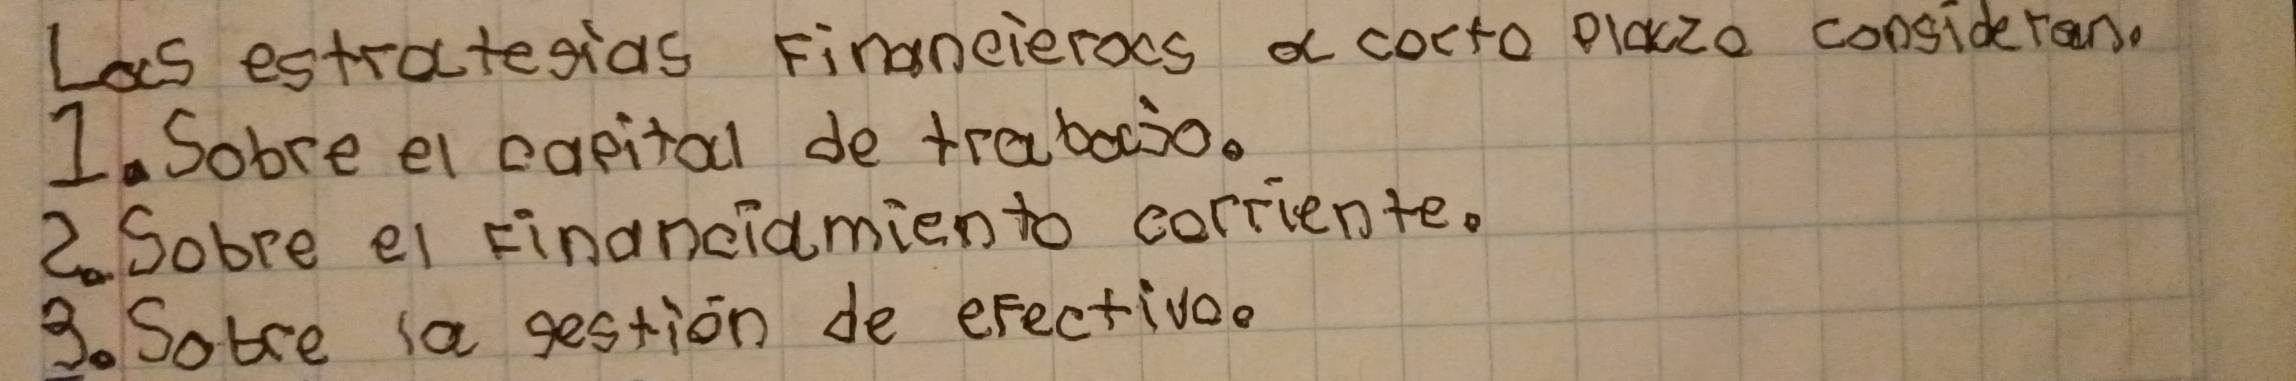 Las estrategias Financieras a corto plazo consideran.
1. Sobre el capital de trabajo.
2. Sobre el Financiamiento corriente.
3. Sobre la gestión de eFectivo.